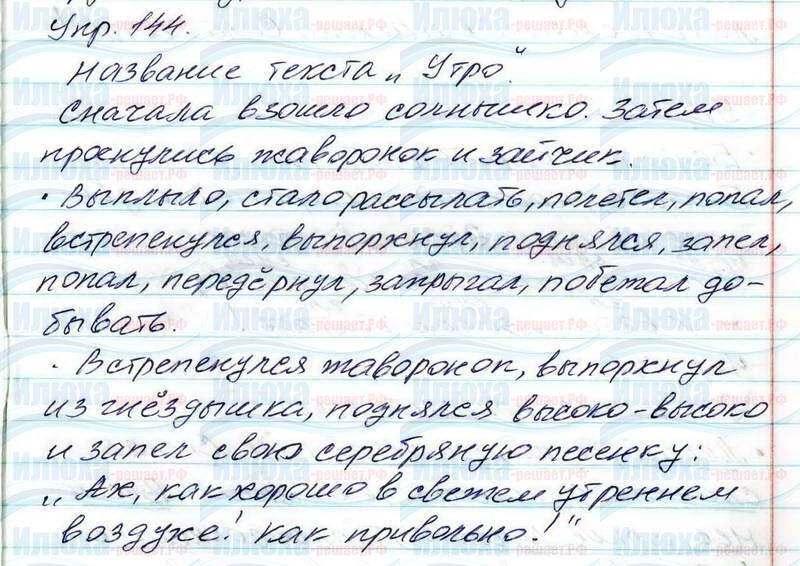 Упр. 144.
Название текста „Утро".
Сначала взошло солнышко. Затем
проснулись жаворонок и зайчик.
· Выплыло, стало рассылать, полетел, попал,
встрепенулся, выпорхнул, поднялся, запел,
попал, передёрнул, запрыгал, побежал до-
бывать.
· Встрепенулся жаворонок, выпорхнул
из гнёздышка, поднялся высоко-высоко
и запел свою серебряную песенку:
„Ах, как хорошо в свежем утреннем
воздухе! как привольно!"